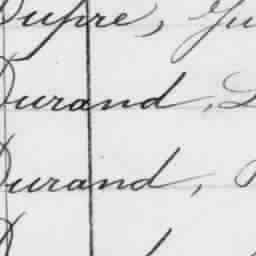 Dupre, Ju
Durand, L
Durand,